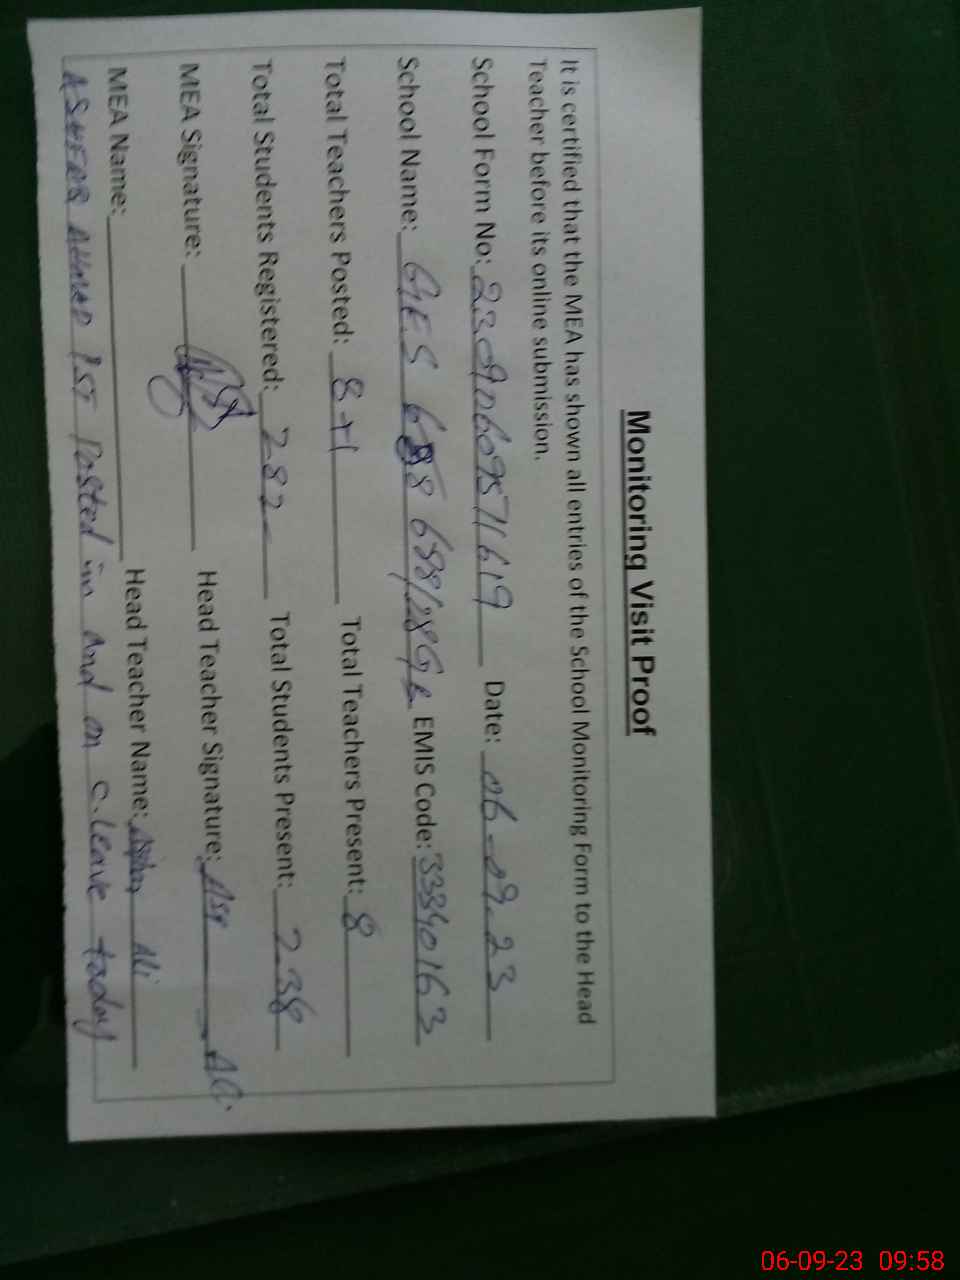 Monitoring Visit Proof
It is certified that the MEA has shown all entries of the School Monitoring Form to the Head
Teacher before its online submission.
School Form No: 230906095711619 Date: 06-09-23
School Name: GES 688 688/28GB EMIS Code: 33340163
Total Teachers Posted: 8+1 Total Teachers Present: 8
Total Students Registered: 282 Total Students Present: 238
MEA Signature: Head Teacher Signature:
MEA Name: Head Teacher Name: Ali
AHMAD Posted in And on C.Leave today
06-09-23 09:58